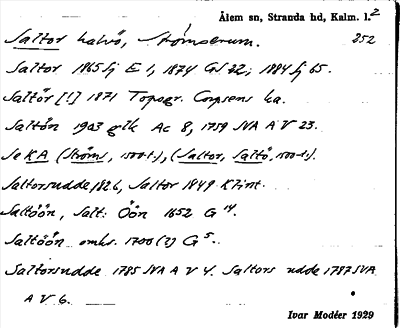 Ålem sn, Stranda hd, Kalm. l. 2
Saltor halvö, Strömserum. 252
Saltor 1865 fj E 1, 1874 GS 22; 1884 fj 65.
Saltör [!] 1871 Topogr. Corpsens ka.
Saltön 1903 glk Ac 8, 1759 NA A V 23.
Se KA (Ströms, 1500-t.), (Saltor, Saltö, 1500-t.).
Saltorsudde 1826, Saltor 1849 Klint.
Saltöön, Salt: Öön 1652 G 14.
Saltöön omkr. 1700 (?) G 5.
Saltorsudde 1785 NA A V 4. Saltors udde 1787 NA
A V 6.
Ivar Modéer 1929